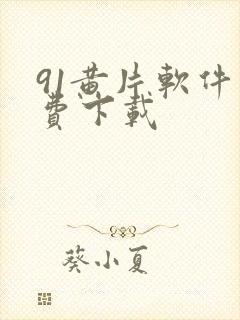 91黃片軟件
費下載
葵小夏